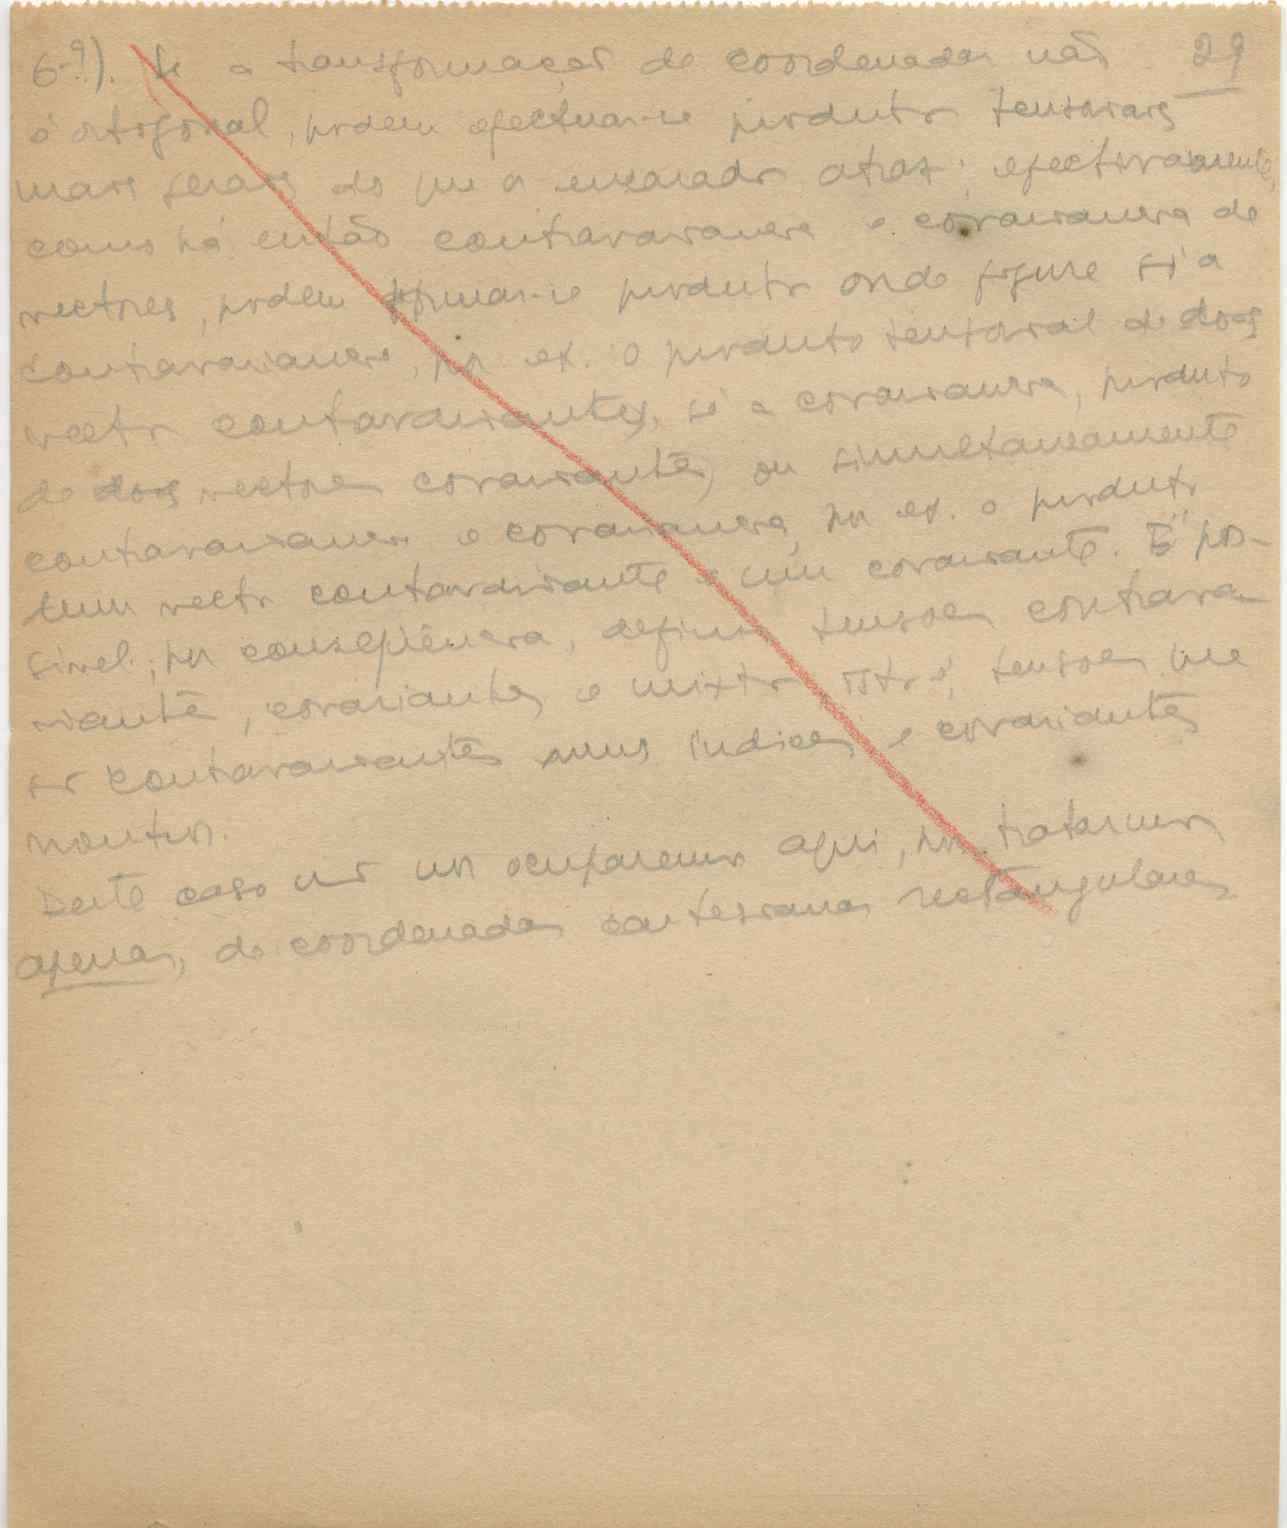 6-º). Se a transformação de coordenadas não 29
é ortogonal, podem efectuar-se produtos tensoriais
mais gerais do que os encarados atraz; efectivamente,
como há então contravariancia e covariancia de
vectores, podem formar-se produtos onde figure só a
contravariancia, por ex. o produto tensorial de dois
vectores contravariantes, só a covariancia, produto
de dois vectores covariantes, ou simultaneamente
contravariancia e covariancia, por ex. o produto
dum vector contravariante e um covariante. É pos-
sivel, por conseqüência, definir tensores contrava
riantes, covariantes e mixtos, isto é, tensores que
são contravariantes nuns índices e covariantes
noutros.
Deste caso não nos ocuparemos aqui, por tratarmos
apenas, de coordenadas cartesianas rectangulares